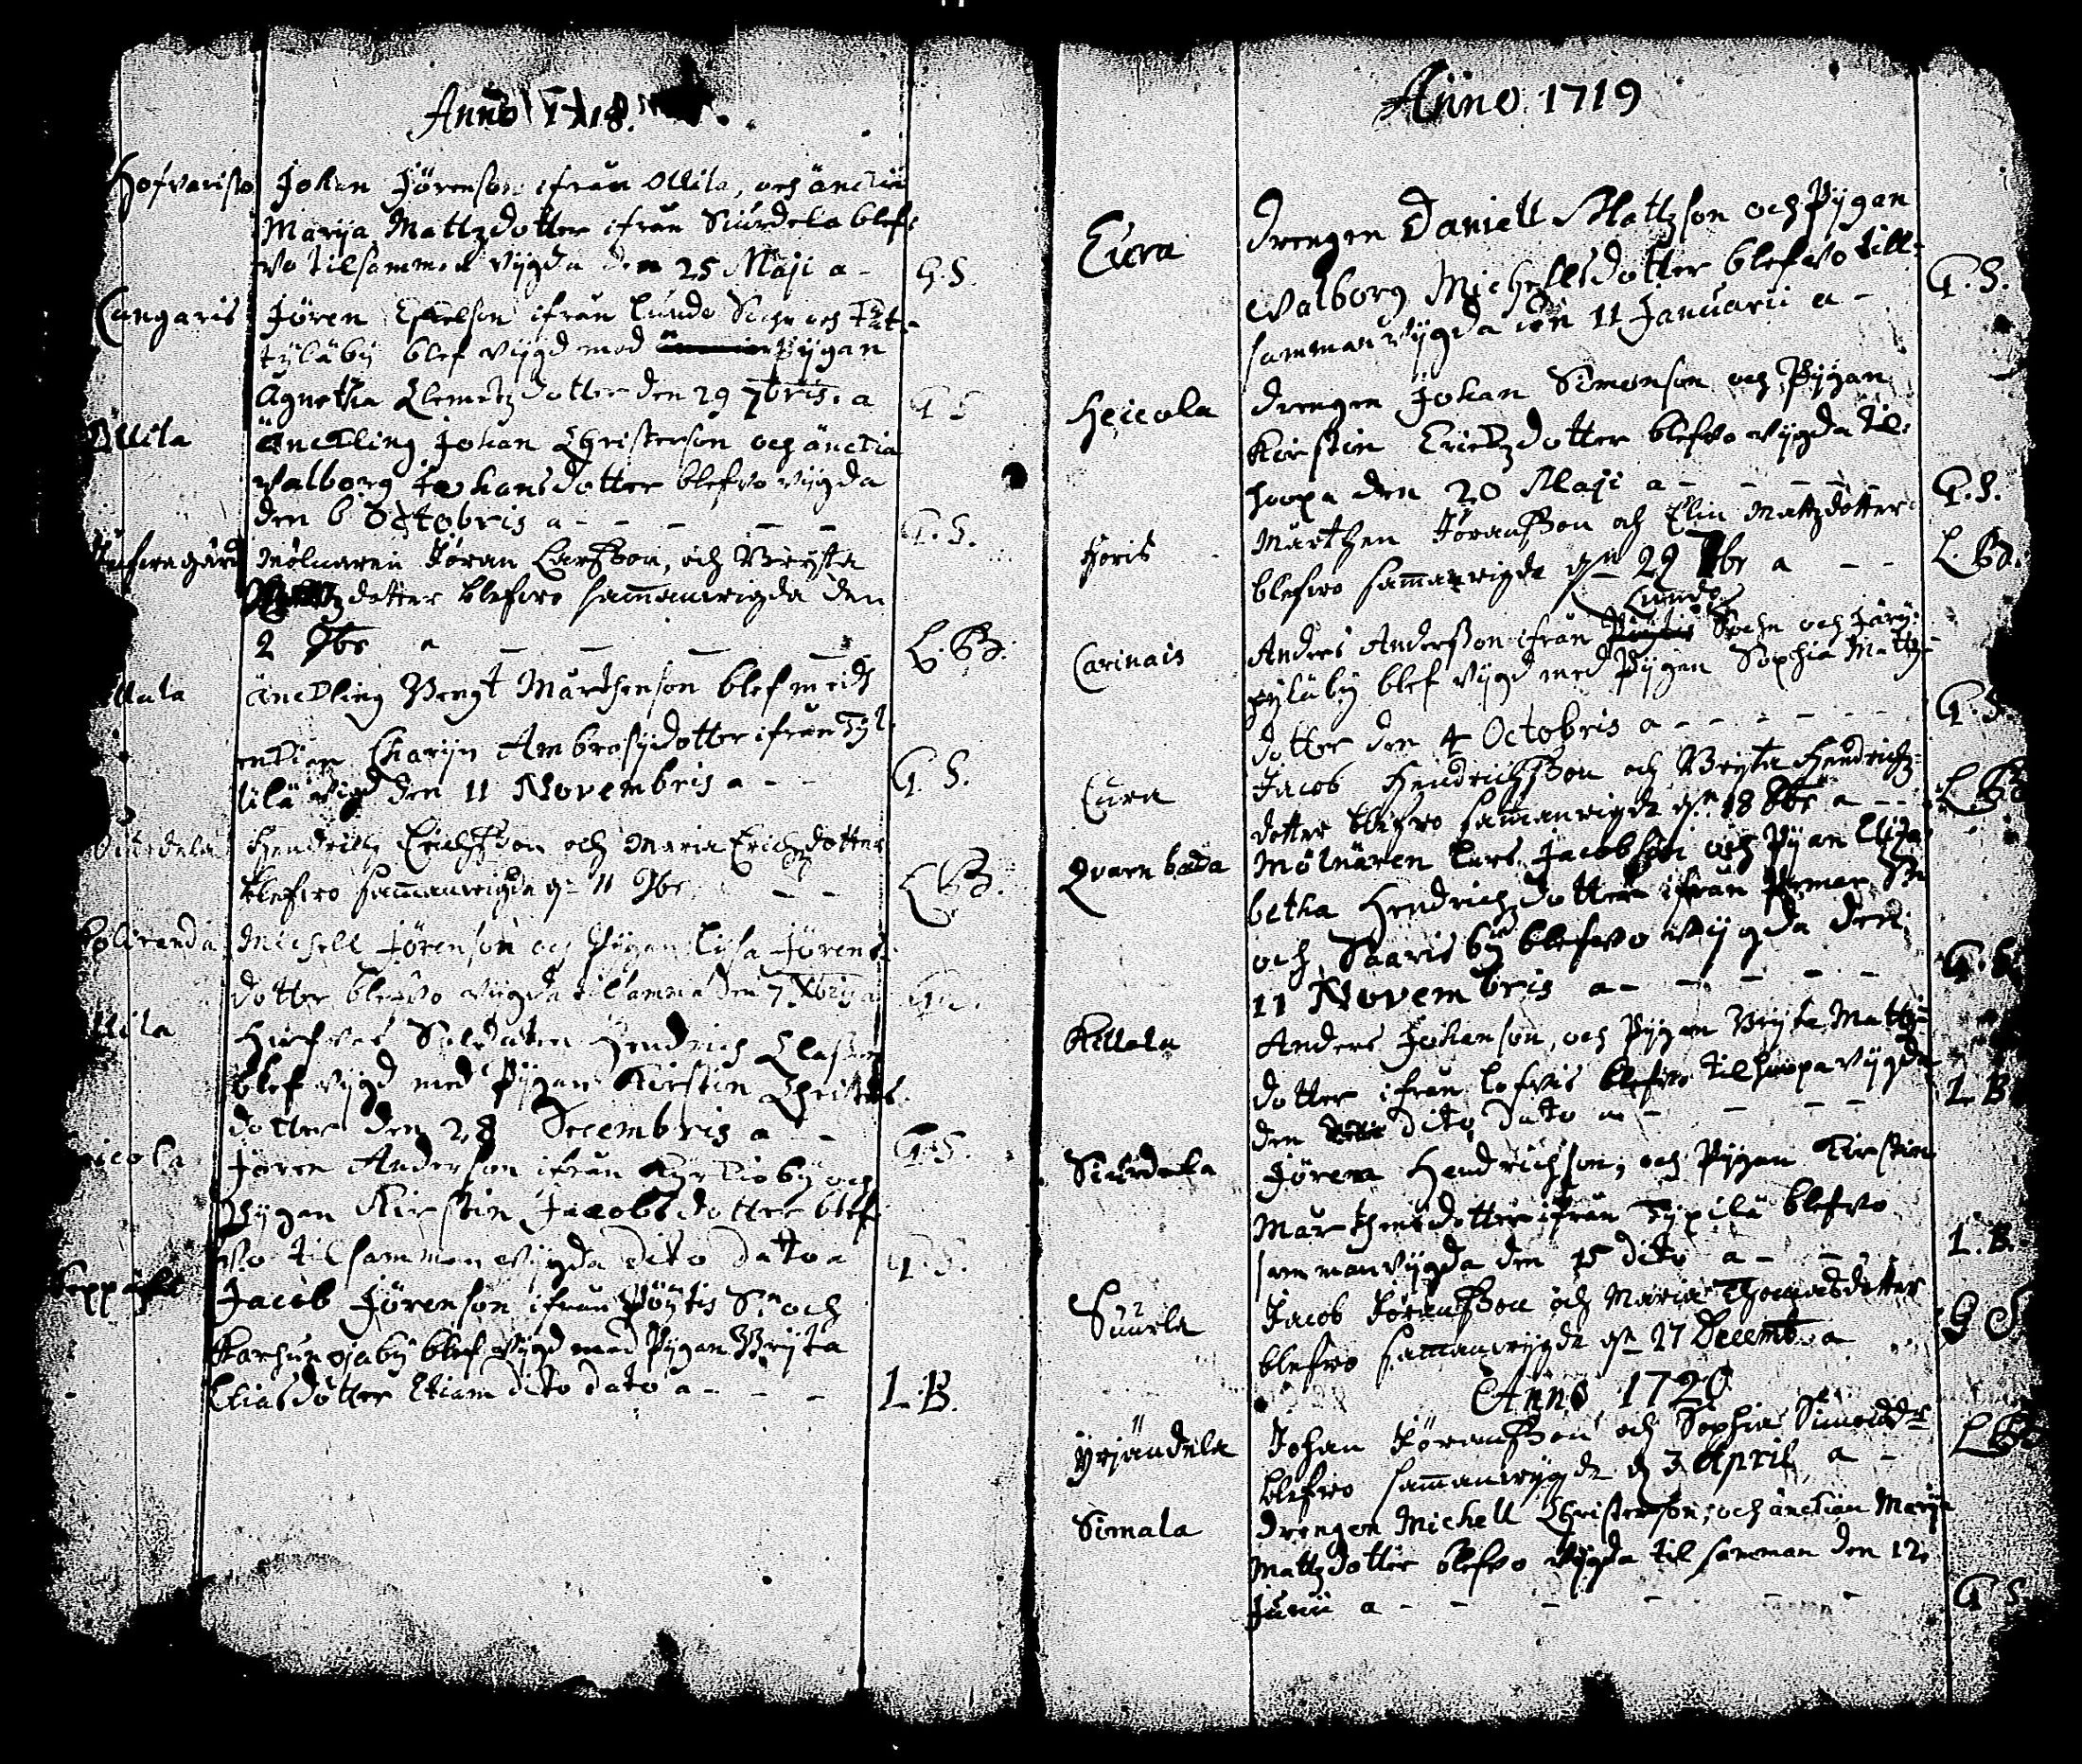 Anno 1718.
Hofvaristo Johan Jörenson ifrån Ollila, och änckiä
Marija Mattzdotter ifrån Siurdela blef-
vo tilsamman vijgda den 25 Maji a - G.S.
Cangaris Jören ifrån Lundo Sochn och
tyläby blef vijgd med Pijgan
Agnetha Clemetzdotter den 29 7bris. a G S
Ollila änckling Johan Christerson och änckia
Valborg Johansdotter blefvo vijgda
den 6 Octobris a - - - - - G.S.
Mölnaren Jöran Larsson, och Brijta
dotter blefwo sam̄anwigda den
2 9br a - - - - L.B.
änckling Bengt Mårthenson blef med
enckian Charijn Ambrosijdotter ifrån Tyl-
lilä vigd den 11 Novembris a - - G S.
Siurdela Hendrich Erichsson och Maria Erichzdotter
blefwo sam̄anwigda dn 11 9br - - L B.
Michell Jörenson och Pijgan Lisa Jörens-
dotter blefvo vijgda tilsamma den 7 Xbris a
Soldaten Hendrich Classon
blef vijgd med Pijgan Kirstin Christers-
dotter den 28 Decembris a - - G.S.
Jören Anderson ifrån Kyrckioby och
Pijgan Kirstin Jacobsdotter blef-
vo tilsamman vijgda dito datto a G.S.
Jacob Jörenson ifrån Pöijtis Sn och
Karhunojaby blef vijgd med Pijgan Brijta
Eliasdotter Etiam dito dato a - - - L.B.
Anno 1719
Eura Drengen Daniell Mattzson och Pijgan
Valborg Michellsdotter blefvo till-
samman vijgda den 11 Januarii a - G.S.
Heicola Drengen Johan Simonson och Pijgan
Kirstin Erickzdotter blefvo vijgda til-
hoopa den 20 Maji a - - - - - G.S.
Joris Mårthen Jöransson och Elin Mattzdotter
blefwo sam̄anwigda dn 29 7br a - - L.B.
Lundo
Carinais Anders Andersson ifrån Sochn och Järy-
pyläby blef vijgd med Pijgan Sophia Mattz-
dotter den 4 Octobris a - - - - - G.S
Eura Jacob Hendrichsson och Brijta Hendrichz-
dotter blefwo sam̄anwigda dn 18 8br a - - L.B.
Qvarn backa Mölnären Lars Jacobson och Pijan Elisa-
betha Hendrichzdotter ifrån Pemar Sn
och Saaris by blefvo vijgda den
11 Novembris a - - - - G.S
Killala Anders Johanson, och Pijgan Brijta Mattz-
dotter ifrån Lofvis blefvo tilhoopa vijgda
den dito dato a - - - - L B
Siurdela Jören Hendrichson, och Pijgan Kirstin
Mårthensdotter ifrån Typilä blefvo
sammanvijgda den 15 dito a - - L.B.
Suurla Jacob Jöransson och Maria Thomasdotter
blefwo sam̄anwijgda dn 27 Decemb. a G S
Anno 1720
Yrjändela Johan Jöransson och Sophia Simonsdr
blefwo sam̄anwijgda d 3 April a - L B
Simala Drengen Michell Christerson, och änckian Marija
Mattzdotter blefvo vijgda til samman den 12
Junii a - - - - - G S